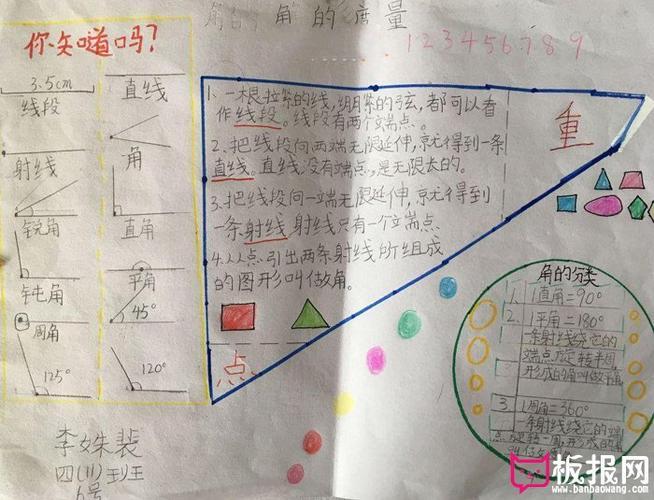 角的度量
1 2 3 4 5 6 7 8 9
你知道吗?
3.5cm
线段
直线
射线
角
锐角
直角
钝角
平角
45°
周角
125°
120°
李姝裴
四(11)班
6号
1、一根拉紧的线,绷紧的弦,都可以看
作线段。线段有两个端点。
2、把线段向两端无限延伸,就得到一条
直线。直线没有端点,是无限大的。
3、把线段向一端无限延伸,就得到
一条射线 射线只有一个端点
4、从一点引出两条射线所组成
的图形叫做角。
重
点
角的分类
1、1直角=90°
2、1平角=180°
一条射线绕它的
端点旋转半周,
形成的角叫做平角
3、1周角=360°
一条射线绕它的端
点旋转一周,形成的角
叫做
板报网
www.banbaowang.com